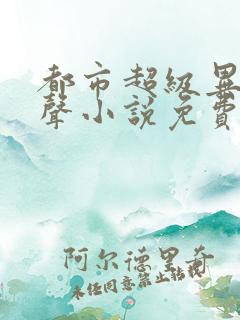 都市超級異
聲小說免費
阿尔德里奇
未经同意禁止转载